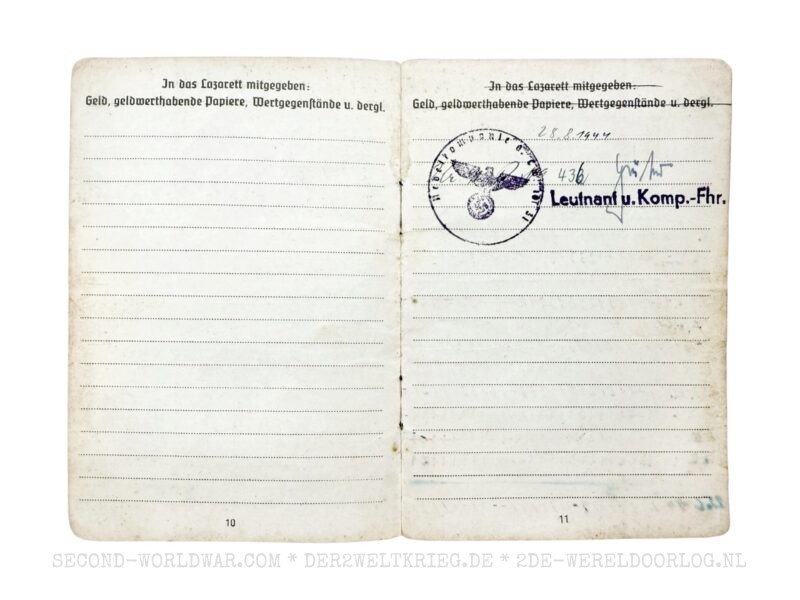 In das Lazarett mitgegeben:
Geld, geldwerthabende Papiere, Wertgegenstände u. dergl.
10
In das Lazarett mitgegeben:
Geld, geldwerthabende Papiere, Wertgegenstände u. dergl.
28.8.1944
436
Leutnant u. Komp.-Fhr.
11
SECOND-WORLDWAR.COM * DER2WELTKRIEG.DE * 2DE-WERELDOORLOG.NL